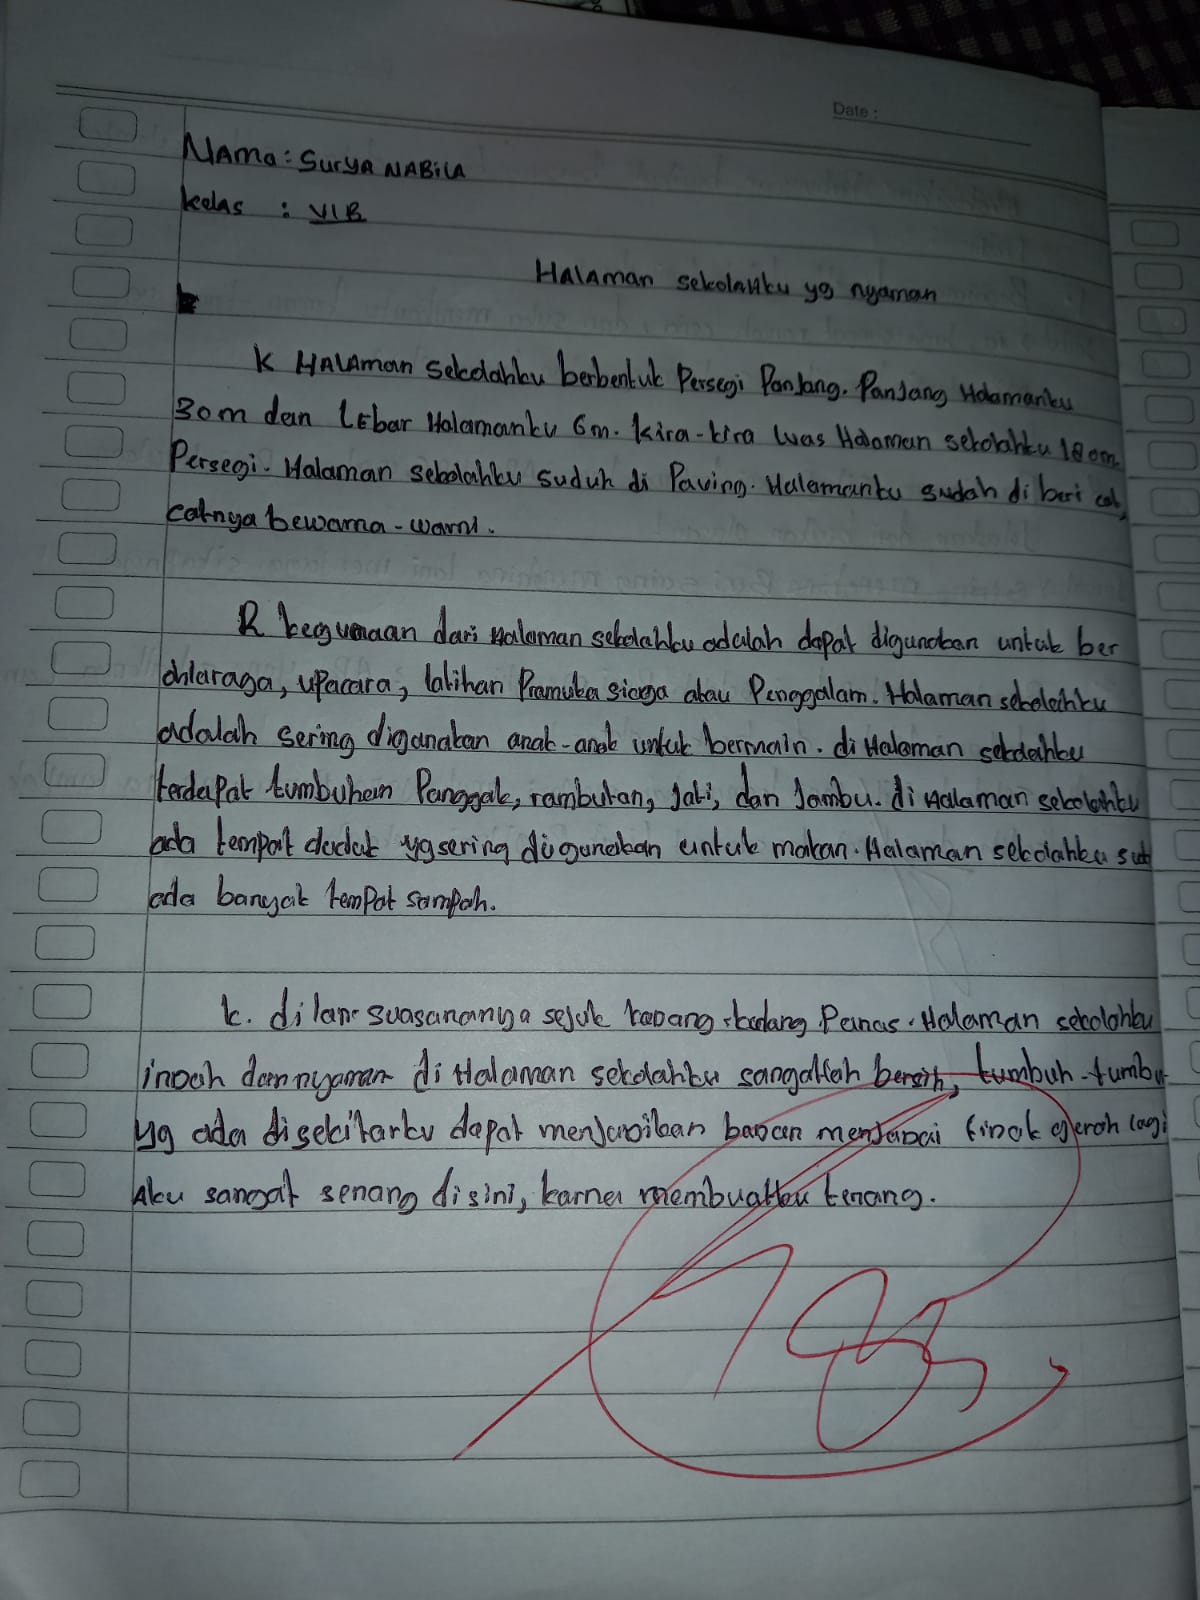 Date :
Nama : Surya Nabila
Kelas : VIB
Halaman sekolahku yg nyaman
K Halaman sekolahku berbentuk Persegi Panjang. Panjang Halamanku
30m dan Lebar Halamanku 6m. Kira-kira luas Halaman sekolahku 180m
Persegi. Halaman sekolahku suduh di Paving. Halamanku sudah di beri cat,
catnya bewarna-warni.
R kegunaan dari Halaman sekolahku adalah dapat digunakan untuk ber
ohlaraga, upacara, latihan Pramuka siaga atau Penggalam. Halaman sekolahku
adalah sering digunakan anak-anak untuk bermain. di Halaman sekolahku
terdapat tumbuhan Panggak, rambutan, Jati, dan Jambu. di Halaman sekolahku
ada tempat duduk yg sering digunakan untuk makan. Halaman sekolahku sud
ada banyak tempat sampah.
k. di suasananya sejuk kadang-kadang Panas. Halaman sekolahku
indah dan nyaman di Halaman sekolahku sangatlah bersih, tumbuh-tumbu
yg ada disekitarku dapat menjadikan badan menjadi tidak gerah lagi
Aku sangat senang disini, karna membuatku tenang.